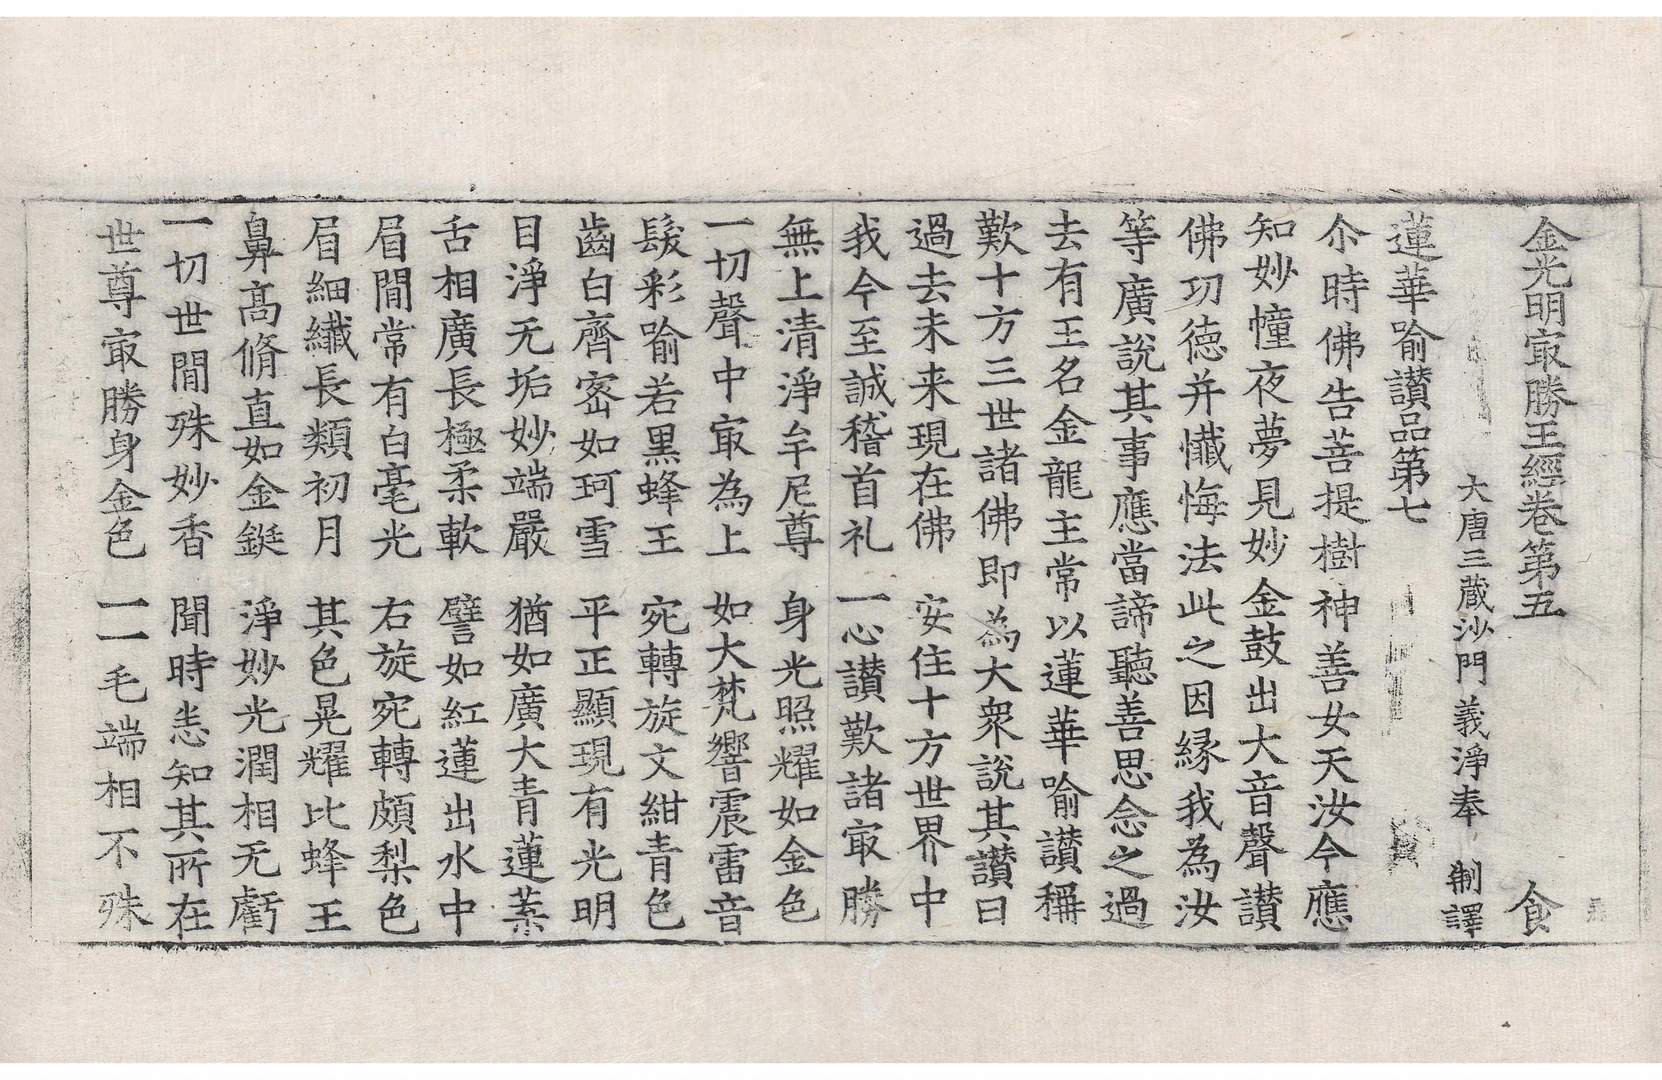 金光明冣勝王經卷第五 食
大唐三藏沙門義淨奉 制譯
蓮華喻讃品第七
尒時佛告菩提樹神善女天汝今應
知妙幢夜夢見妙金鼓出大音聲讃
佛㓛德并懺悔法此之因緣我為汝
等廣說其事應當諦聽善思念之過
去有王名金龍主常以蓮華喻讃稱
歎十方三世諸佛即為大衆說其讃曰
過去未来現在佛 安住十方世界中
我今至誠稽首礼 一心讃歎諸冣勝
無上清淨牟尼尊 身光照耀如金色
一切聲中冣為上 如大梵響震雷音
髮彩喻若黑蜂王 宛轉旋文紺青色
齒白齊宻如珂雪 平正顯現有光明
目淨无垢妙端嚴 猶如廣大青蓮葉
舌相廣長極柔軟 譬如紅蓮出水中
眉間常有白毫光 右旋宛轉頗梨色
眉細纖長類初月 其色晃耀比蜂王
鼻髙脩直如金鋌 淨妙光潤相无虧
一切世間殊妙香 聞時悉知其所在
世尊冣勝身金色 一一毛端相不殊